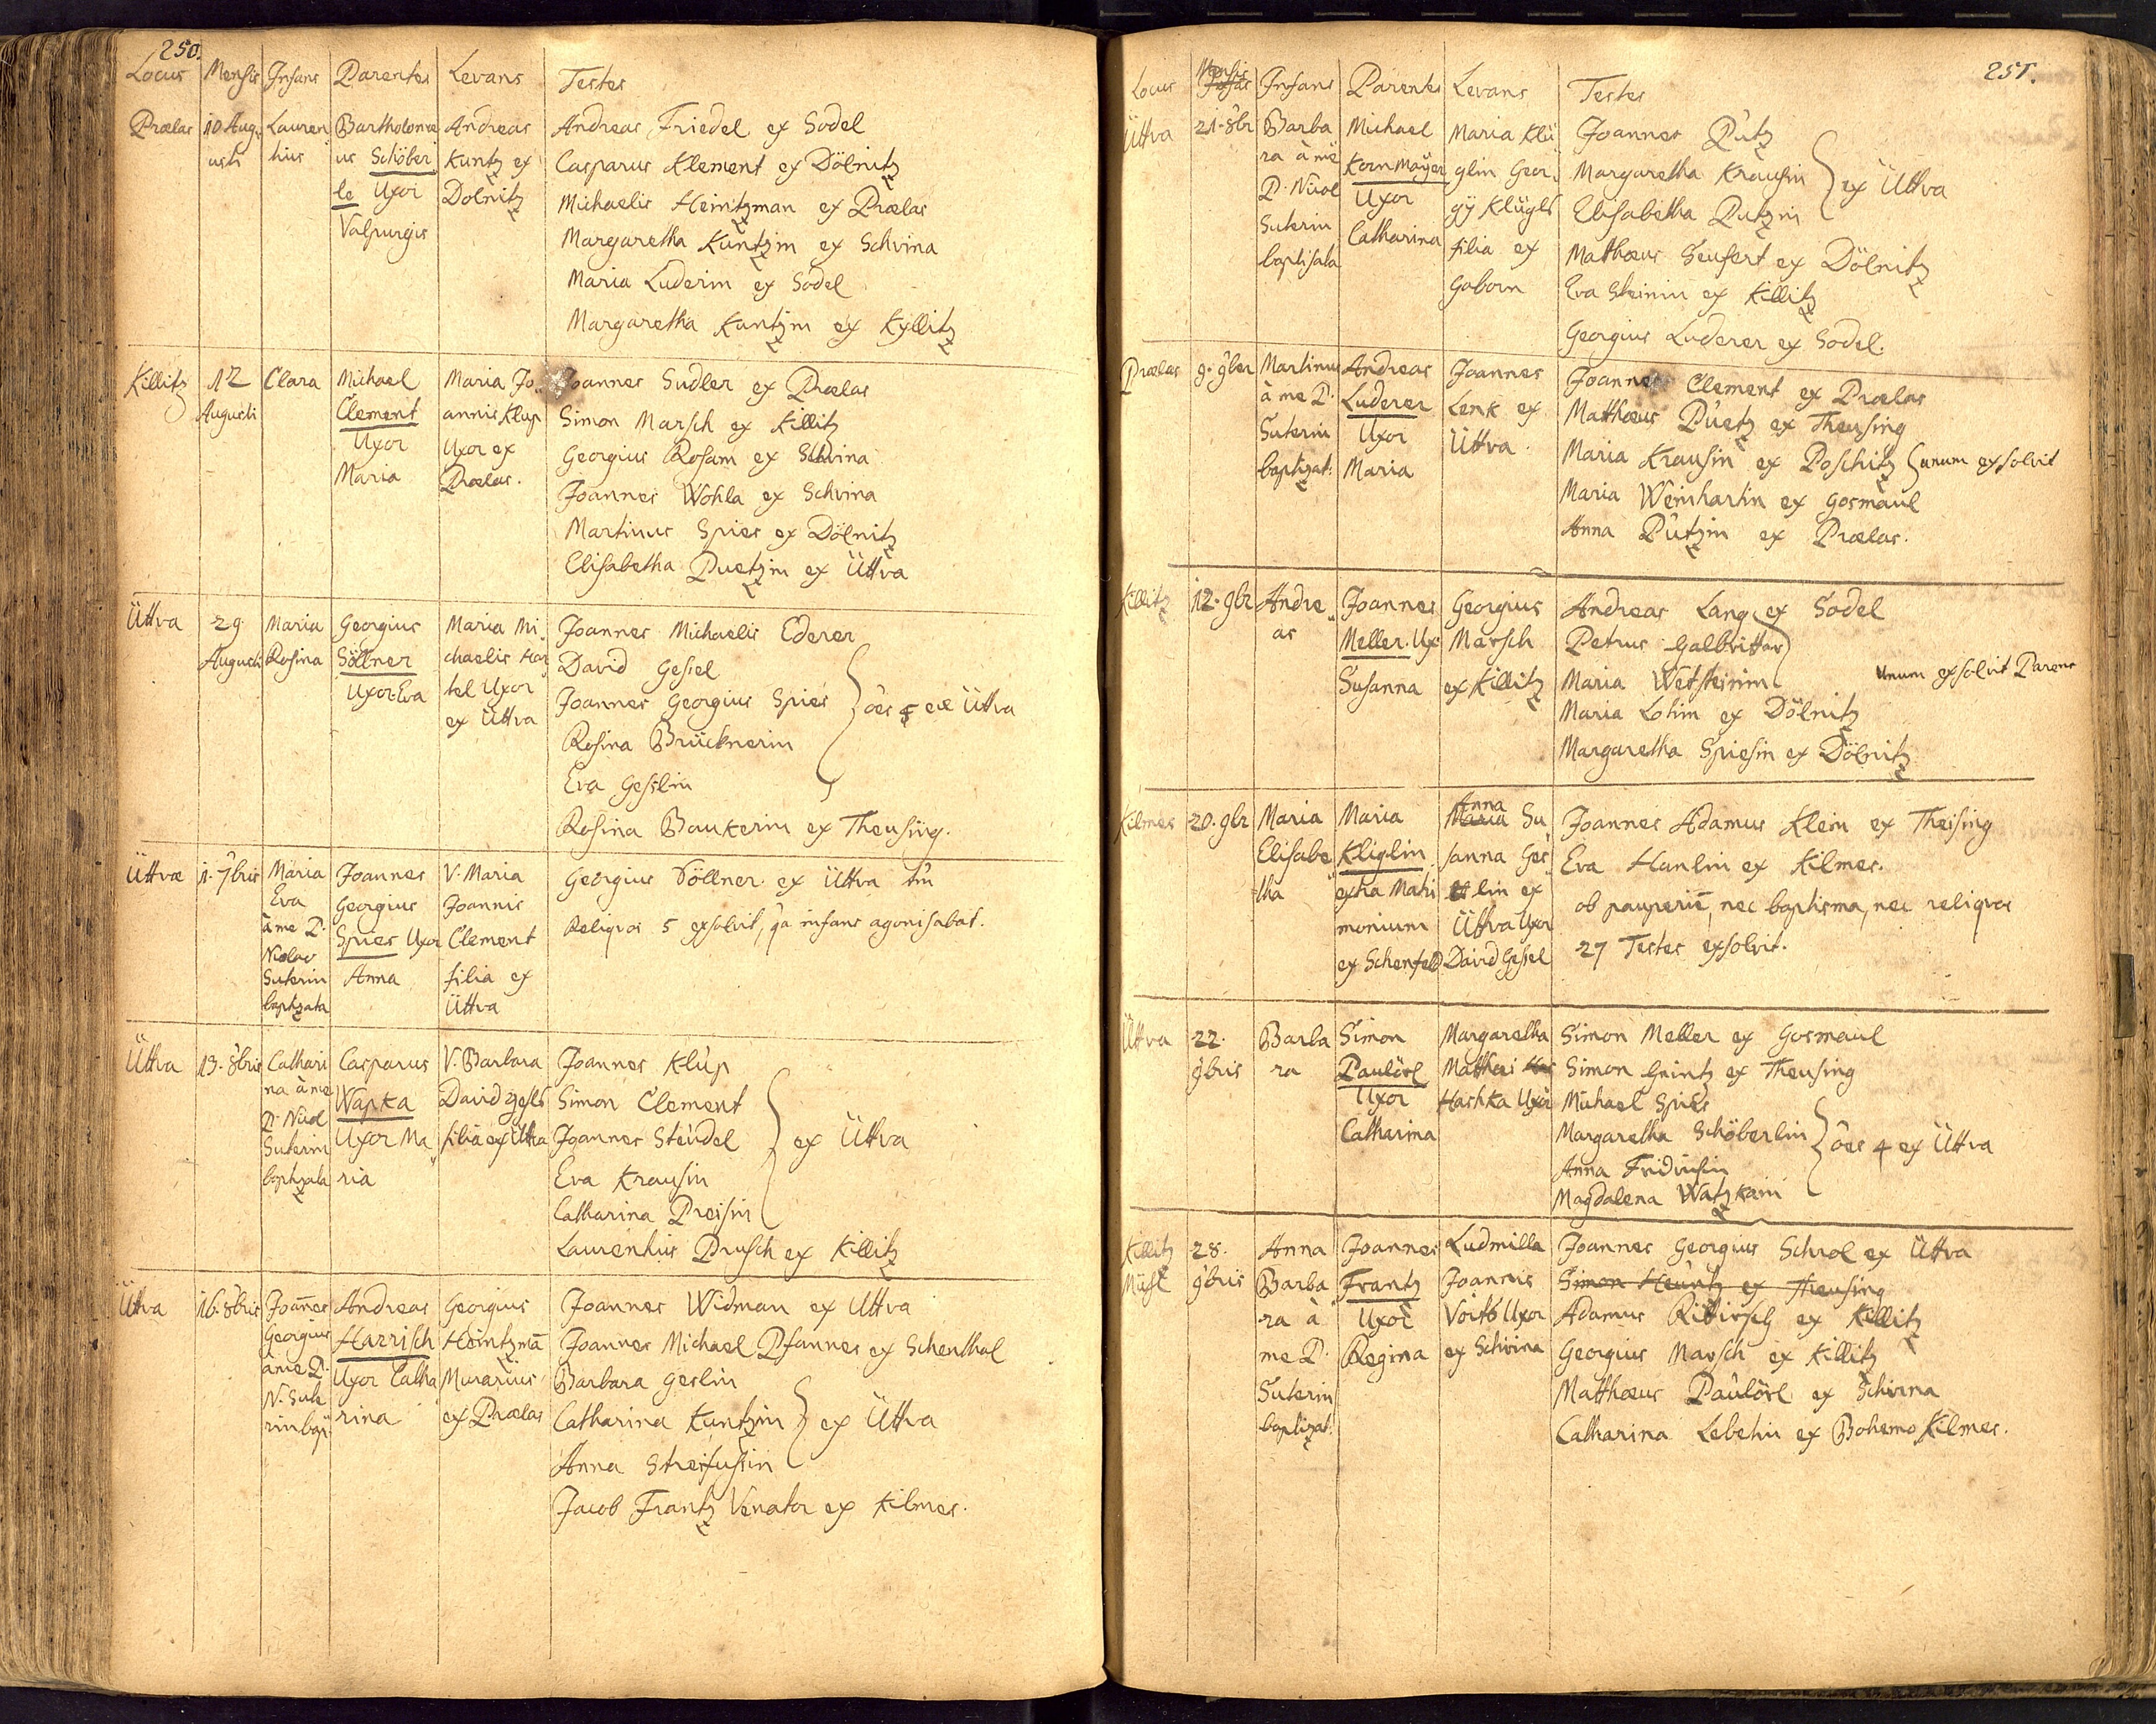 250.
Locus Mensis Infans Parentes Levans Testes
Prælas
10 Aug.
usti
Lauren
tius
Bartholomæ
us Schöber
le Uxor
Valpurgis
Andreas
Kuntz ex
Dölnitz
Andreas Friedel ex Sodel
Casparus Klement ex Dölnitz
Michaelis Heintzman ex Prælas
Margaretha Kuntzin ex Schvina
Maria Luderin ex Sodel
Margaretha Kuntzin ex Kyllitz
Killitz
12
Augusti
Clara
Michael
Clement
Uxor
Maria
Maria Jo
annis Klup
Uxor ex
Prælas.
Joannes Sudler ex Prælas
Simon Marsch ex Killitz
Georgius Rosam ex Schvina
Joannes Wohla ex Schvina
Martinus Spies ex Dölnitz
Elisabetha Puetzin ex Üttva
Üttva
29
Augusti
Maria
Rosina
Georgius
Söllner
Uxor Eva
Maria Mi
chaelis Har
tel Uxor
ex Üttva
Joannes Michaelis Ederer
David Gessel
Joannes Georgius Spies
Rosina Brücknerin
Eva Gesslin
ôes 5 ex Üttva
Rosina Baukerin ex Theusing.
Üttvæ
1. 7bris
Maria
Eva
à me P.
Nicolao
Suterin
baptzata
Joannes
Georgius
Spies Uxor
Anna
V. Maria
Joannis
Clement
filia ex
Üttva
Georgius Söllner ex Üttva tm
Reliqvos 5 exsolvit, qa infans agonisabat.
Üttva
13. 8bris
Cathari
na à me
P. Nicol
Suterin
baptzata
Casparus
Wapka
Uxor Ma
ria
V. Barbara
David Gesls
filia ex Üttva
Joannes Klup
Simon Clement
Joannes Steudel
Eva Krausin
Catharina Preisin
ex Üttva
Laurentius Prusch ex Killitz
Üttva
16. 8bris
Joañes
Georgius
à me P.
N. Sute
rin bap.
Andreas
Harrisch
Uxor Catha
rina
Georgius
Heintzmã
Murarius
ex Prælas
Joannes Widman ex Uttva
Joannes Michael Pfannes ex Schenthal
Barbara Geslin
Catharina Kuntzin
Anna Streifussin
ex Üttva
Jacob Frantz Venator ex Kilmes.
251.
Locus Mensis Infans Parentes Levans Testes
Üttva
21. 8br
Barba
ra à me
P. Nicol
Suterin
baptisata
Michael
Kornmayer
Uxor
Catharina
Maria Klü
glin Geor
gÿ Klügls
filia ex
Gaborn
Joannes Putz
Margaretha Krausin
Elisabetha Putzin
ex Üttva
Matthæus Seufert ex Dölnitz
Eva Steinin ex Killitz
Georgius Luderer ex Sodel.
Prælas
9. 9ber
Martinus
à me P.
Suterin
baptizat:
Andreas
Luderer
Uxor
Maria
Joannes
Lenk ex
Üttva.
Joannes Clement ex Prælas
Matthæus Puetz ex Theusing
Maria Krausin ex Poschitz unum exsolvit
Maria Weinhartin ex Gosmaul
Anna Putzin ex Prælas.
Killitz
12. 9br
Andre
as
Joannes
Meller. Ux
Susanna
Georgius
Marsch
ex Killitz
Andreas Lang ex Sodel
Petrus Galbritter
Maria Wetsteinin
unum exsolvit Parens
Maria Lohin ex Dölnitz
Margaretha Spiesin ex Dölnitz
Kilmes
20. 9br
Maria
Elisabe
tha
Maria
Kliglin
extra Matri
monium
ex Schenfeld
Anna
Maria Su
sanna Ges
lin ex
Üttva Uxor
David Gessel
Joannes Adamus Klein ex Theising
Eva Hanlin ex Kilmes.
ob pauperie, nec baptisma, nec reliqvos
27 Testes exsolvit.
Üttva
22.
9bris
Barba
ra
Simon
Paulörl
Uxor
Catharina
Margaretha
Matthæi Has
Hashka Uxor
Simon Meller ex Gosmaul
Simon Heintz ex Theusing
Michael Spies
Margaretha Schöberlin
Anna Fridrisin
Magdalena Watzkain
ôes 4 ex Üttva
Killitz
Mühl
28.
9bris
Anna
Barba
ra à
me P.
Suterin
baptizat.
Joannes
Frantz
Uxor
Regina
Ludmilla
Joannis
Voits Uxor
ex Schvina
Joannes Georgius Schrol ex Üttva
Simon Heuntz ex Theusing
Adamus Rittirsch ex Killitz
Georgius Marsch ex Killitz
Matthæus Paulörl ex Schvina
Catharina Lebetin ex Bohemo Kilmes.